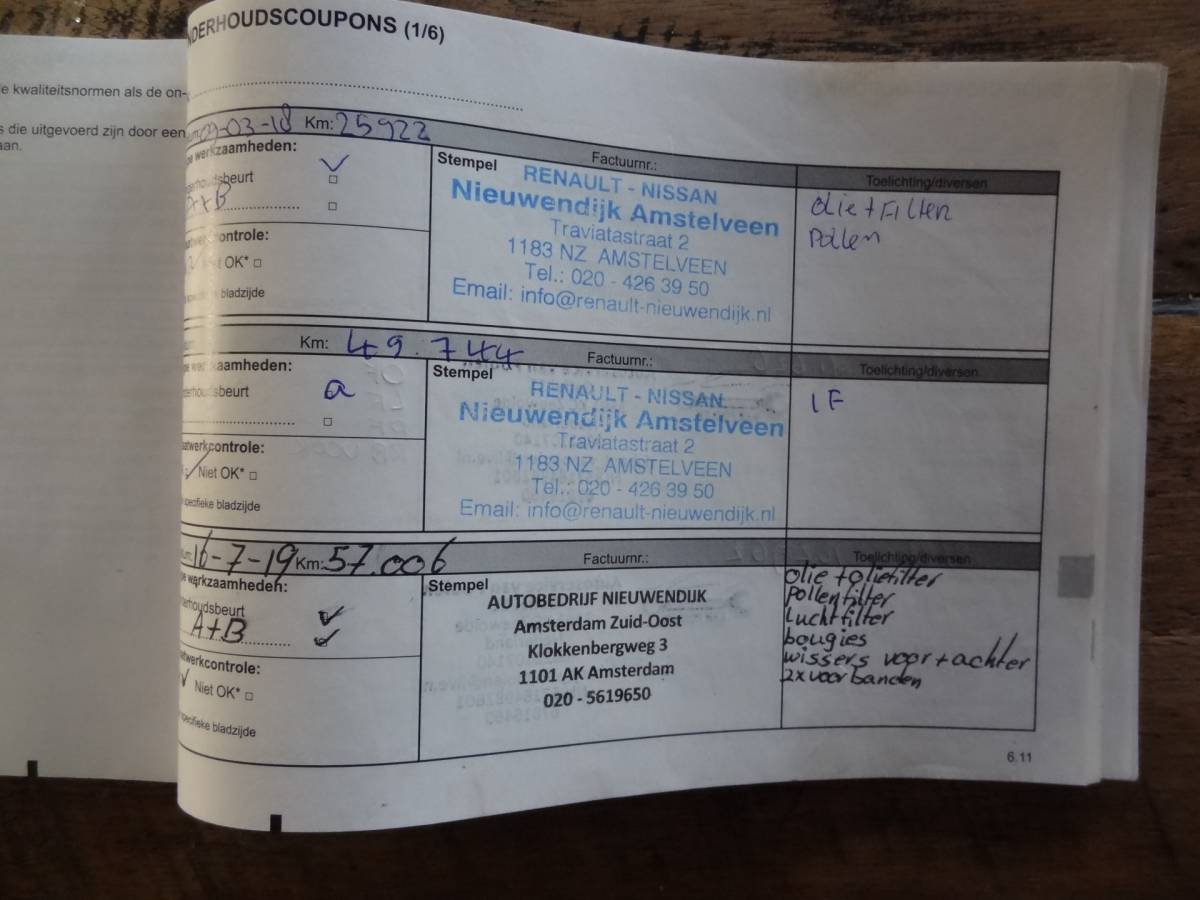 NDERHOUDSCOUPONS (1/6)
e kwaliteitsnormen als de on-
s die uitgevoerd zijn door een
aan.
09-03-18 Km: 25922 Factuurnr.:
werkzaamheden:
beurt
A+B
controle:
OK*
bladzijde
Stempel
RENAULT - NISSAN
Nieuwendijk Amstelveen
Traviatastraat 2
1183 NZ AMSTELVEEN
Tel.: 020 - 426 39 50
Email: info@renault-nieuwendijk.nl
Toelichting/diversen
olie + Filter
Pollen
Km: 49.744 Factuurnr.:
aamheden:
beurt
a
atwerkcontrole:
Niet OK*
specifieke bladzijde
Stempel
RENAULT - NISSAN
Nieuwendijk Amstelveen
Traviatastraat 2
1183 NZ AMSTELVEEN
Tel.: 020 - 426 39 50
Email: info@renault-nieuwendijk.nl
Toelichting/diversen
IF
16-7-19 Km: 57.006 Factuurnr.:
werkzaamheden:
erhoudsbeurt
A+B
atwerkcontrole:
Niet OK*
specifieke bladzijde
Stempel
AUTOBEDRIJF NIEUWENDIJK
Amsterdam Zuid-Oost
Klokkenbergweg 3
1101 AK Amsterdam
020 - 5619650
Toelichting/diversen
olie + oliefilter
pollenfilter
luchtfilter
bougies
wissers voor + achter
2x voorbanden
6.11